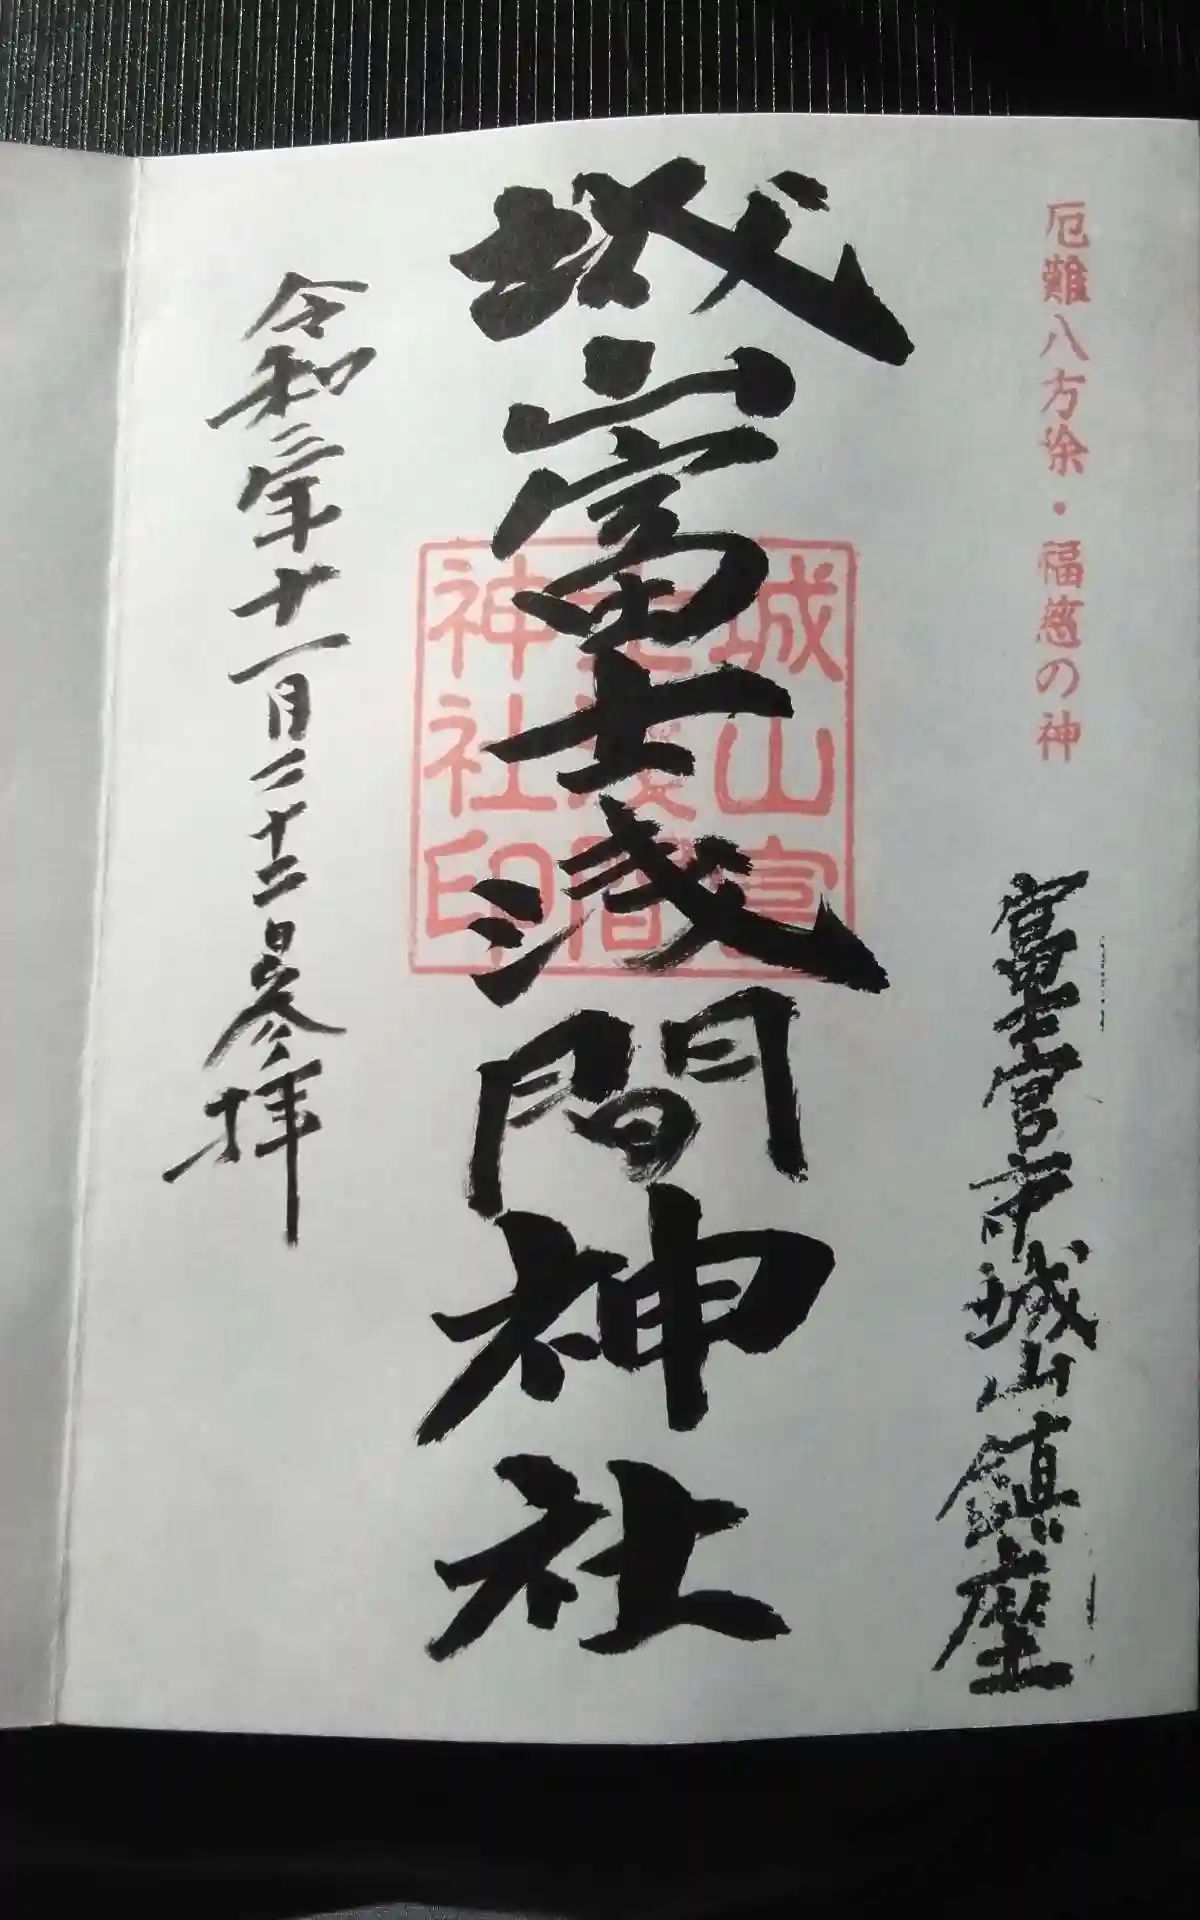 厄難八方除・福慈の神
富士宮市城山鎮座
城山富士浅間神社
城山富
士浅間
神社印
令和二年十一月二十二日参拝